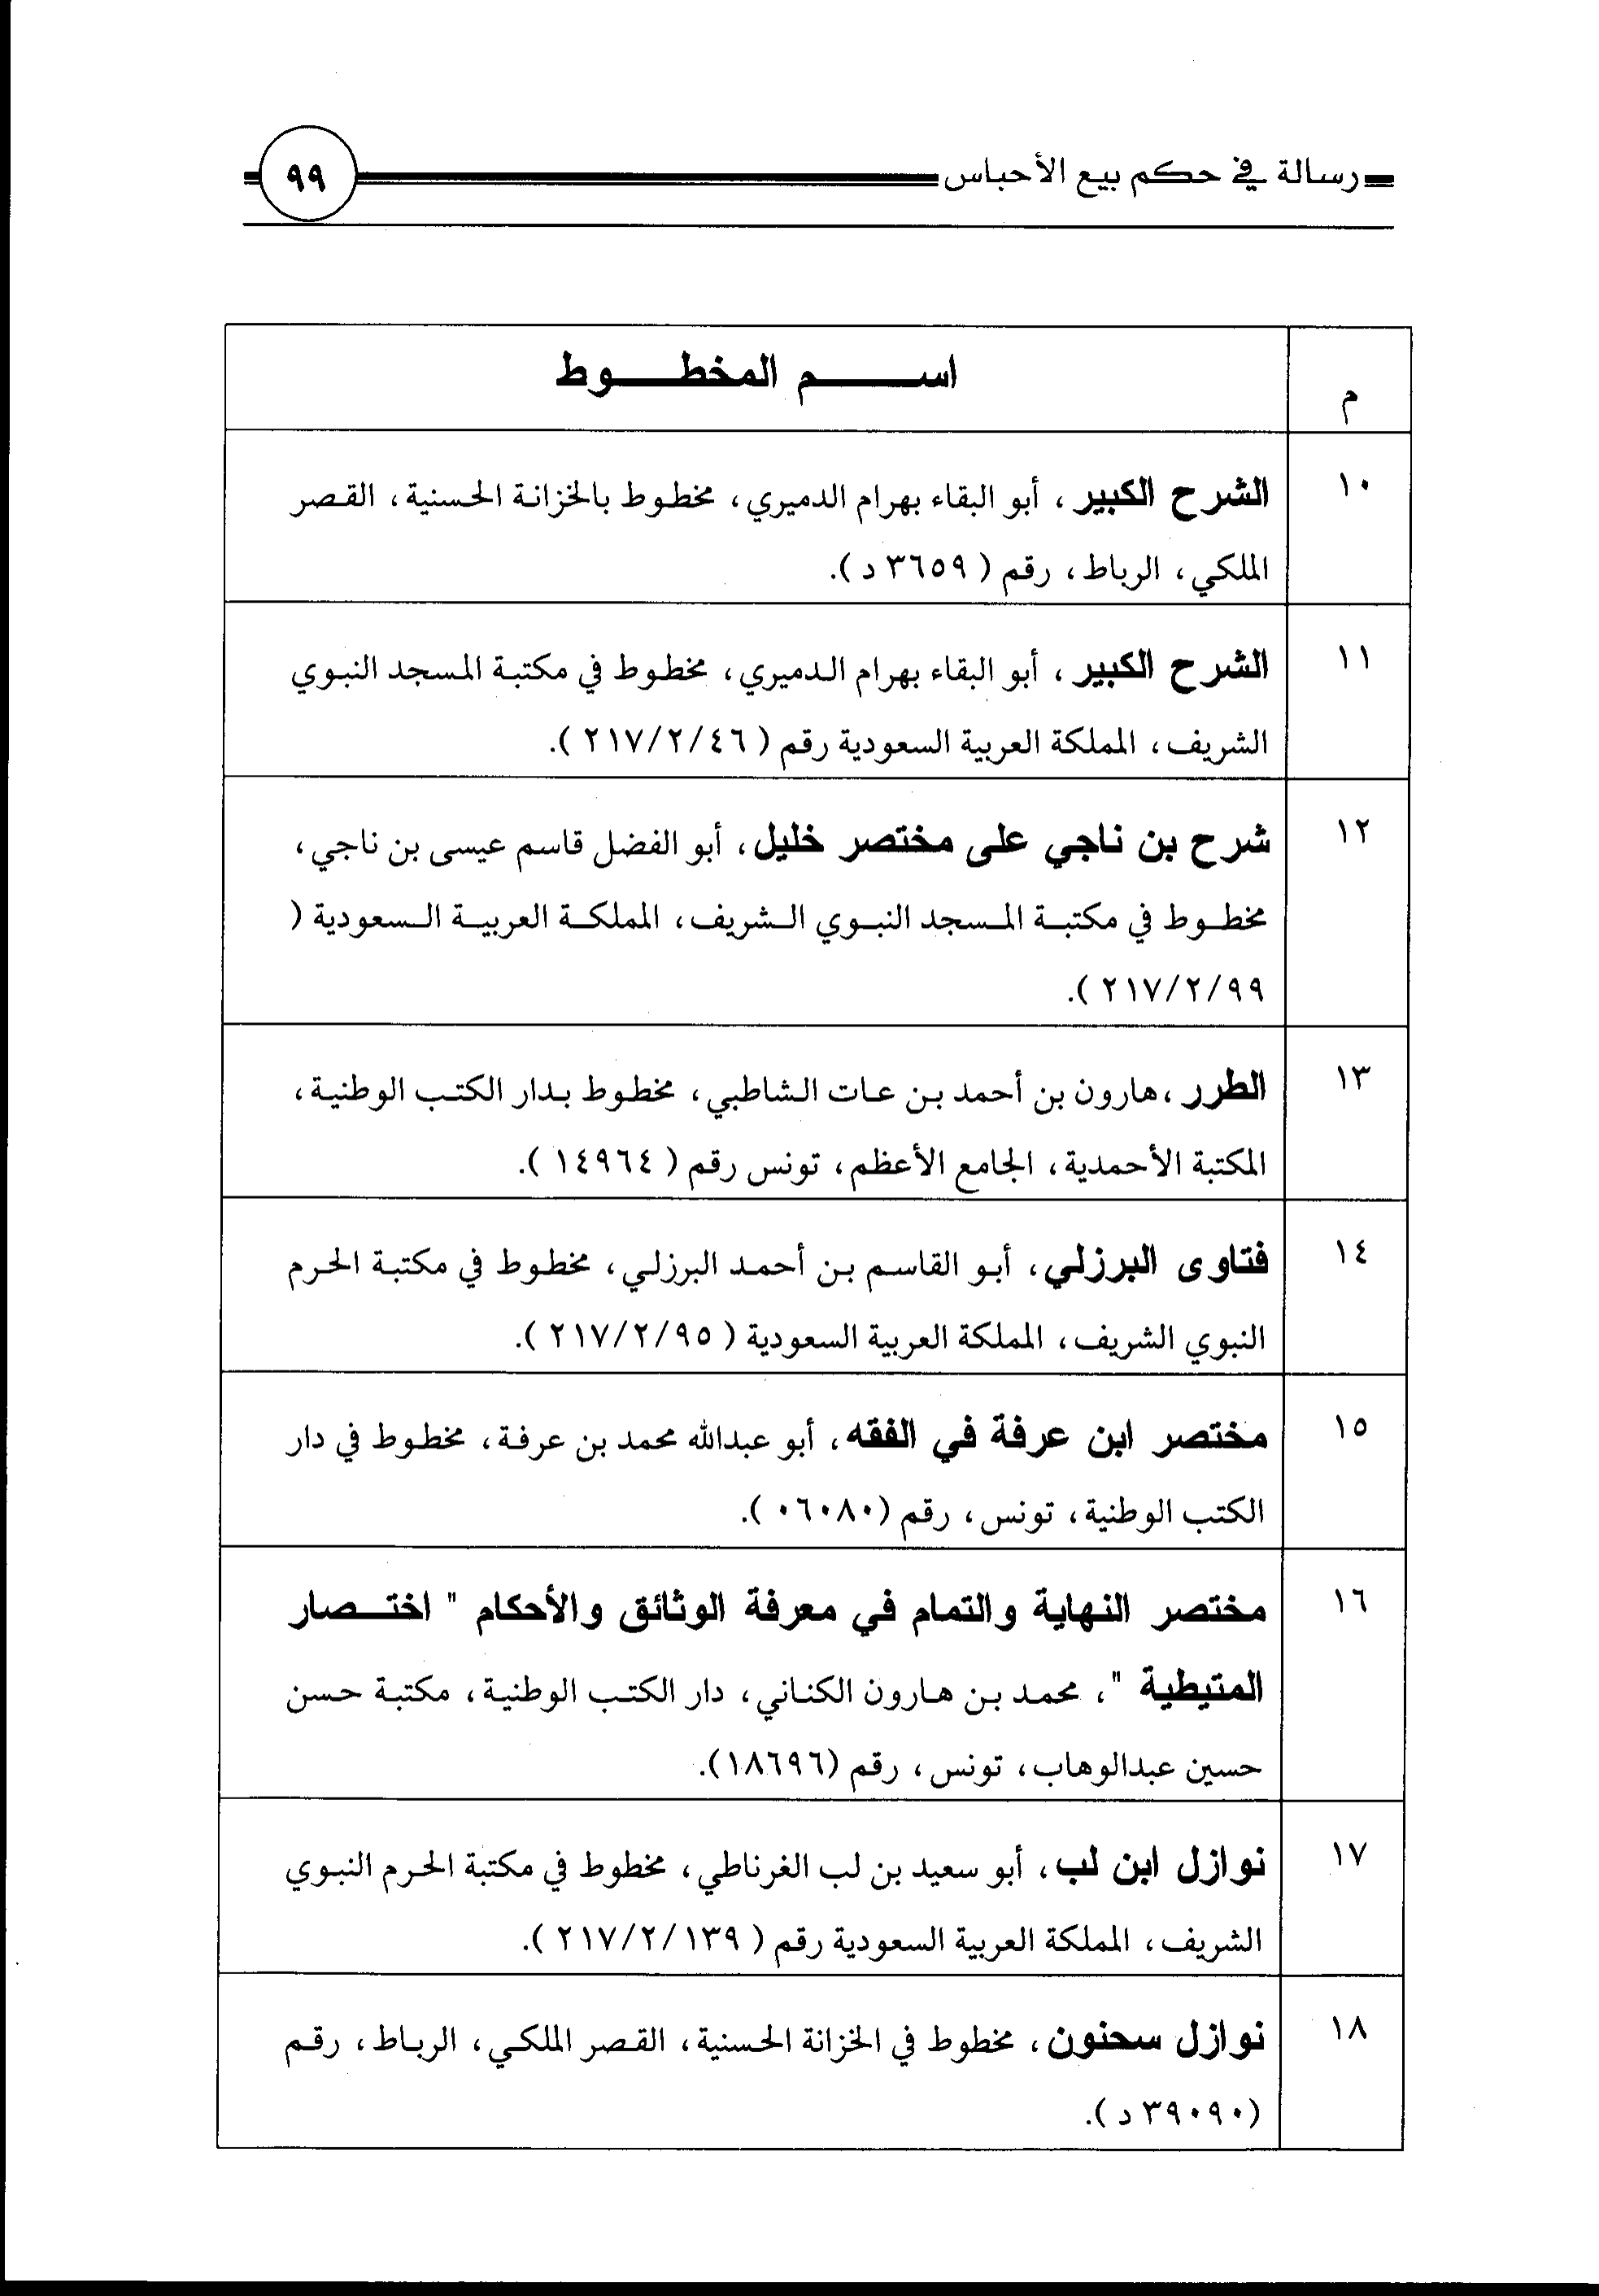 رسالة في حكم بيع الأحباس
٩٩
م
اسم المخطوط
١٠
الشرح الكبير ، أبو البقاء بهرام الدميري، مخطوط بالخزانة الحسنية، القصر
الملكي، الرباط، رقم ( ٣٦٥٩ د ).
١١
الشرح الكبير ، أبو البقاء بهرام الدميري، مخطوط في مكتبة المسجد النبوي
الشريف، المملكة العربية السعودية رقم ( ٢١٧/٢/٤٦ ).
١٢
شرح بن ناجي على مختصر خليل، أبو الفضل قاسم عيسى بن ناجي،
مخطوط في مكتبة المسجد النبوي الشريف، المملكة العربية السعودية (
٢١٧/٢/٩٩ ).
١٣
الطرر ،هارون بن أحمد بن عات الشاطبي، مخطوط بدار الكتب الوطنية،
المكتبة الأحمدية، الجامع الأعظم، تونس رقم ( ١٤٩٦٤ ).
١٤
فتاوى البرزلي، أبو القاسم بن أحمد البرزلي، مخطوط في مكتبة الحرم
النبوي الشريف، المملكة العربية السعودية ( ٢١٧/٢/٩٥ ).
١٥
مختصر ابن عرفة في الفقه، أبو عبدالله محمد بن عرفة، مخطوط في دار
الكتب الوطنية، تونس، رقم (٠٦٠٨٠ ).
١٦
مختصر النهاية والتمام في معرفة الوثائق والأحكام " اختصار
المتيطية "، محمد بن هارون الكناني، دار الكتب الوطنية، مكتبة حسن
حسين عبدالوهاب، تونس، رقم (١٨٦٩٦).
١٧
نوازل ابن لب، أبو سعيد بن لب الغرناطي، مخطوط في مكتبة الحرم النبوي
الشريف، المملكة العربية السعودية رقم ( ٢١٧/٢/١٣٩ ).
١٨
نوازل سحنون، مخطوط في الخزانة الحسنية، القصر الملكي، الرباط، رقم
(٣٩٠٩٠ د ).